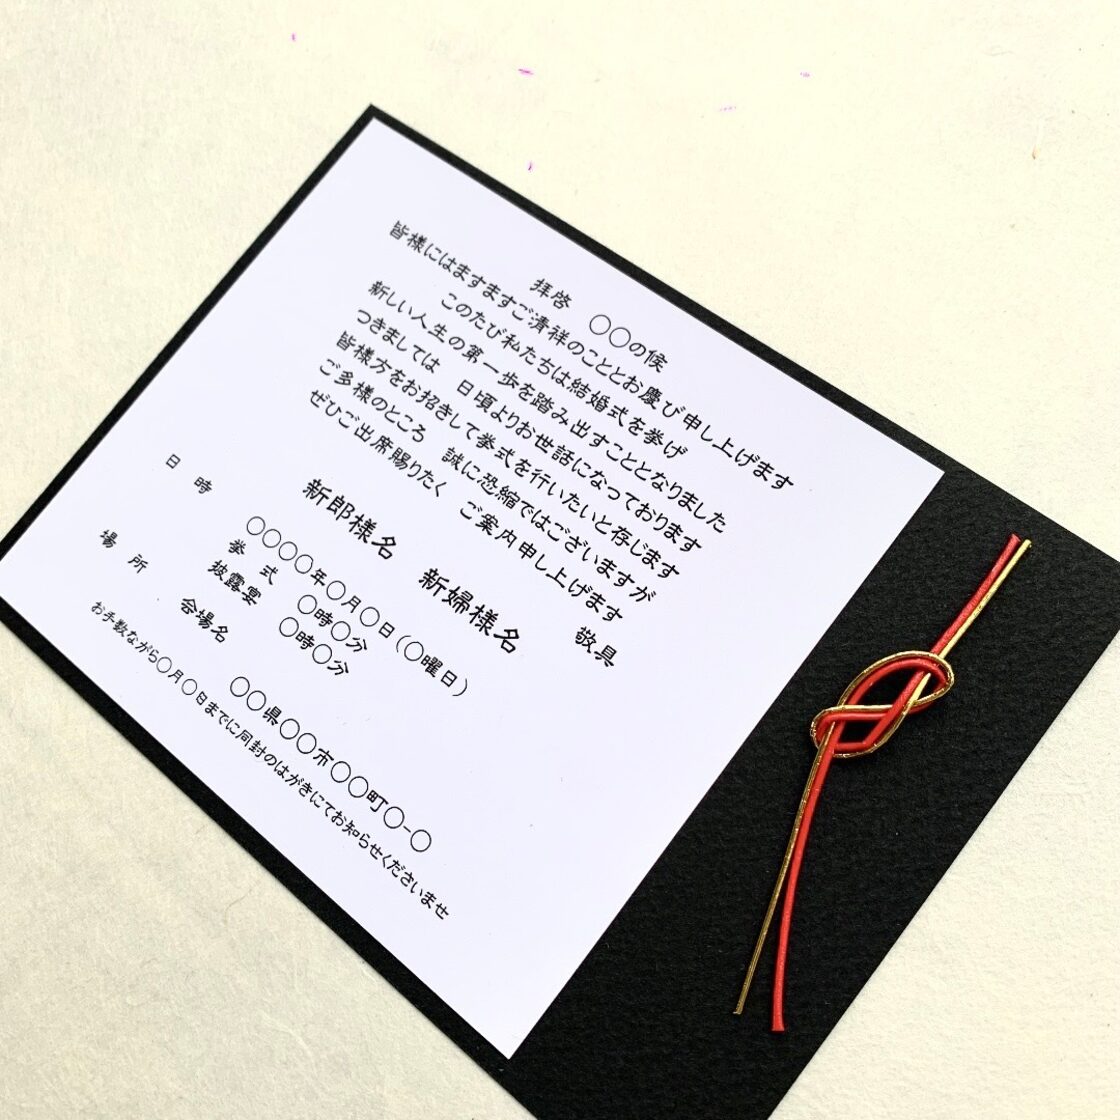 拝啓　〇〇の候
皆様にはますますご清祥のこととお慶び申し上げます
このたび私たちは結婚式を挙げ
新しい人生の第一歩を踏み出すこととなりました
つきましては　日頃よりお世話になっております
皆様方をお招きして挙式を行いたいと存じます
ご多様のところ　誠に恐縮ではございますが
ぜひご出席賜りたく　ご案内申し上げます
敬具
新郎様名　新婦様名
日　時　〇〇〇〇年〇月〇日（〇曜日）
挙　式　〇時〇分
披露宴　〇時〇分
場　所　会場名
〇〇県〇〇市〇〇町〇-〇
お手数ながら〇月〇日までに同封のはがきにてお知らせくださいませ